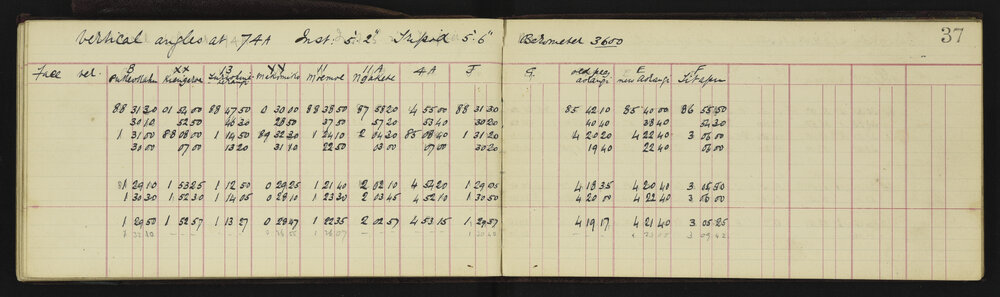 37
Vertical angles at 74A Inst: 5' 2" Tripod 5' 6" Barometer 3600
B XX 13 XX 11 11A 4A J G old peg E F
Face ver. Aorangi Moemoe Ngakete Aorangi Titapu
88 31 30 01 54 00 88 47 50 0 30 00 88 38 50 87 58 20 4 55 00 88 31 30 85 42 10 85 40 00 86 55 50
30 10 52 50 46 30 28 50 37 50 57 20 53 40 30 20 40 40 38 40 54 30
1 31 00 88 08 00 1 14 50 89 32 30 1 24 10 2 04 30 85 08 40 1 31 20 4 20 20 4 22 40 3 06 00
30 00 07 00 13 20 31 10 22 50 03 00 07 00 30 20 19 40 22 40 06 00
1 29 10 1 53 25 1 12 50 0 29 25 1 21 40 2 02 10 4 54 20 1 29 05 4 18 35 4 20 40 3 05 50
1 30 30 1 52 30 1 14 05 0 28 10 1 23 30 2 03 45 4 52 10 1 30 50 4 20 00 4 22 40 3 06 00
1 29 50 1 52 57 1 13 27 0 28 47 1 22 35 2 02 57 4 53 15 1 29 57 4 19 17 4 21 40 3 05 25